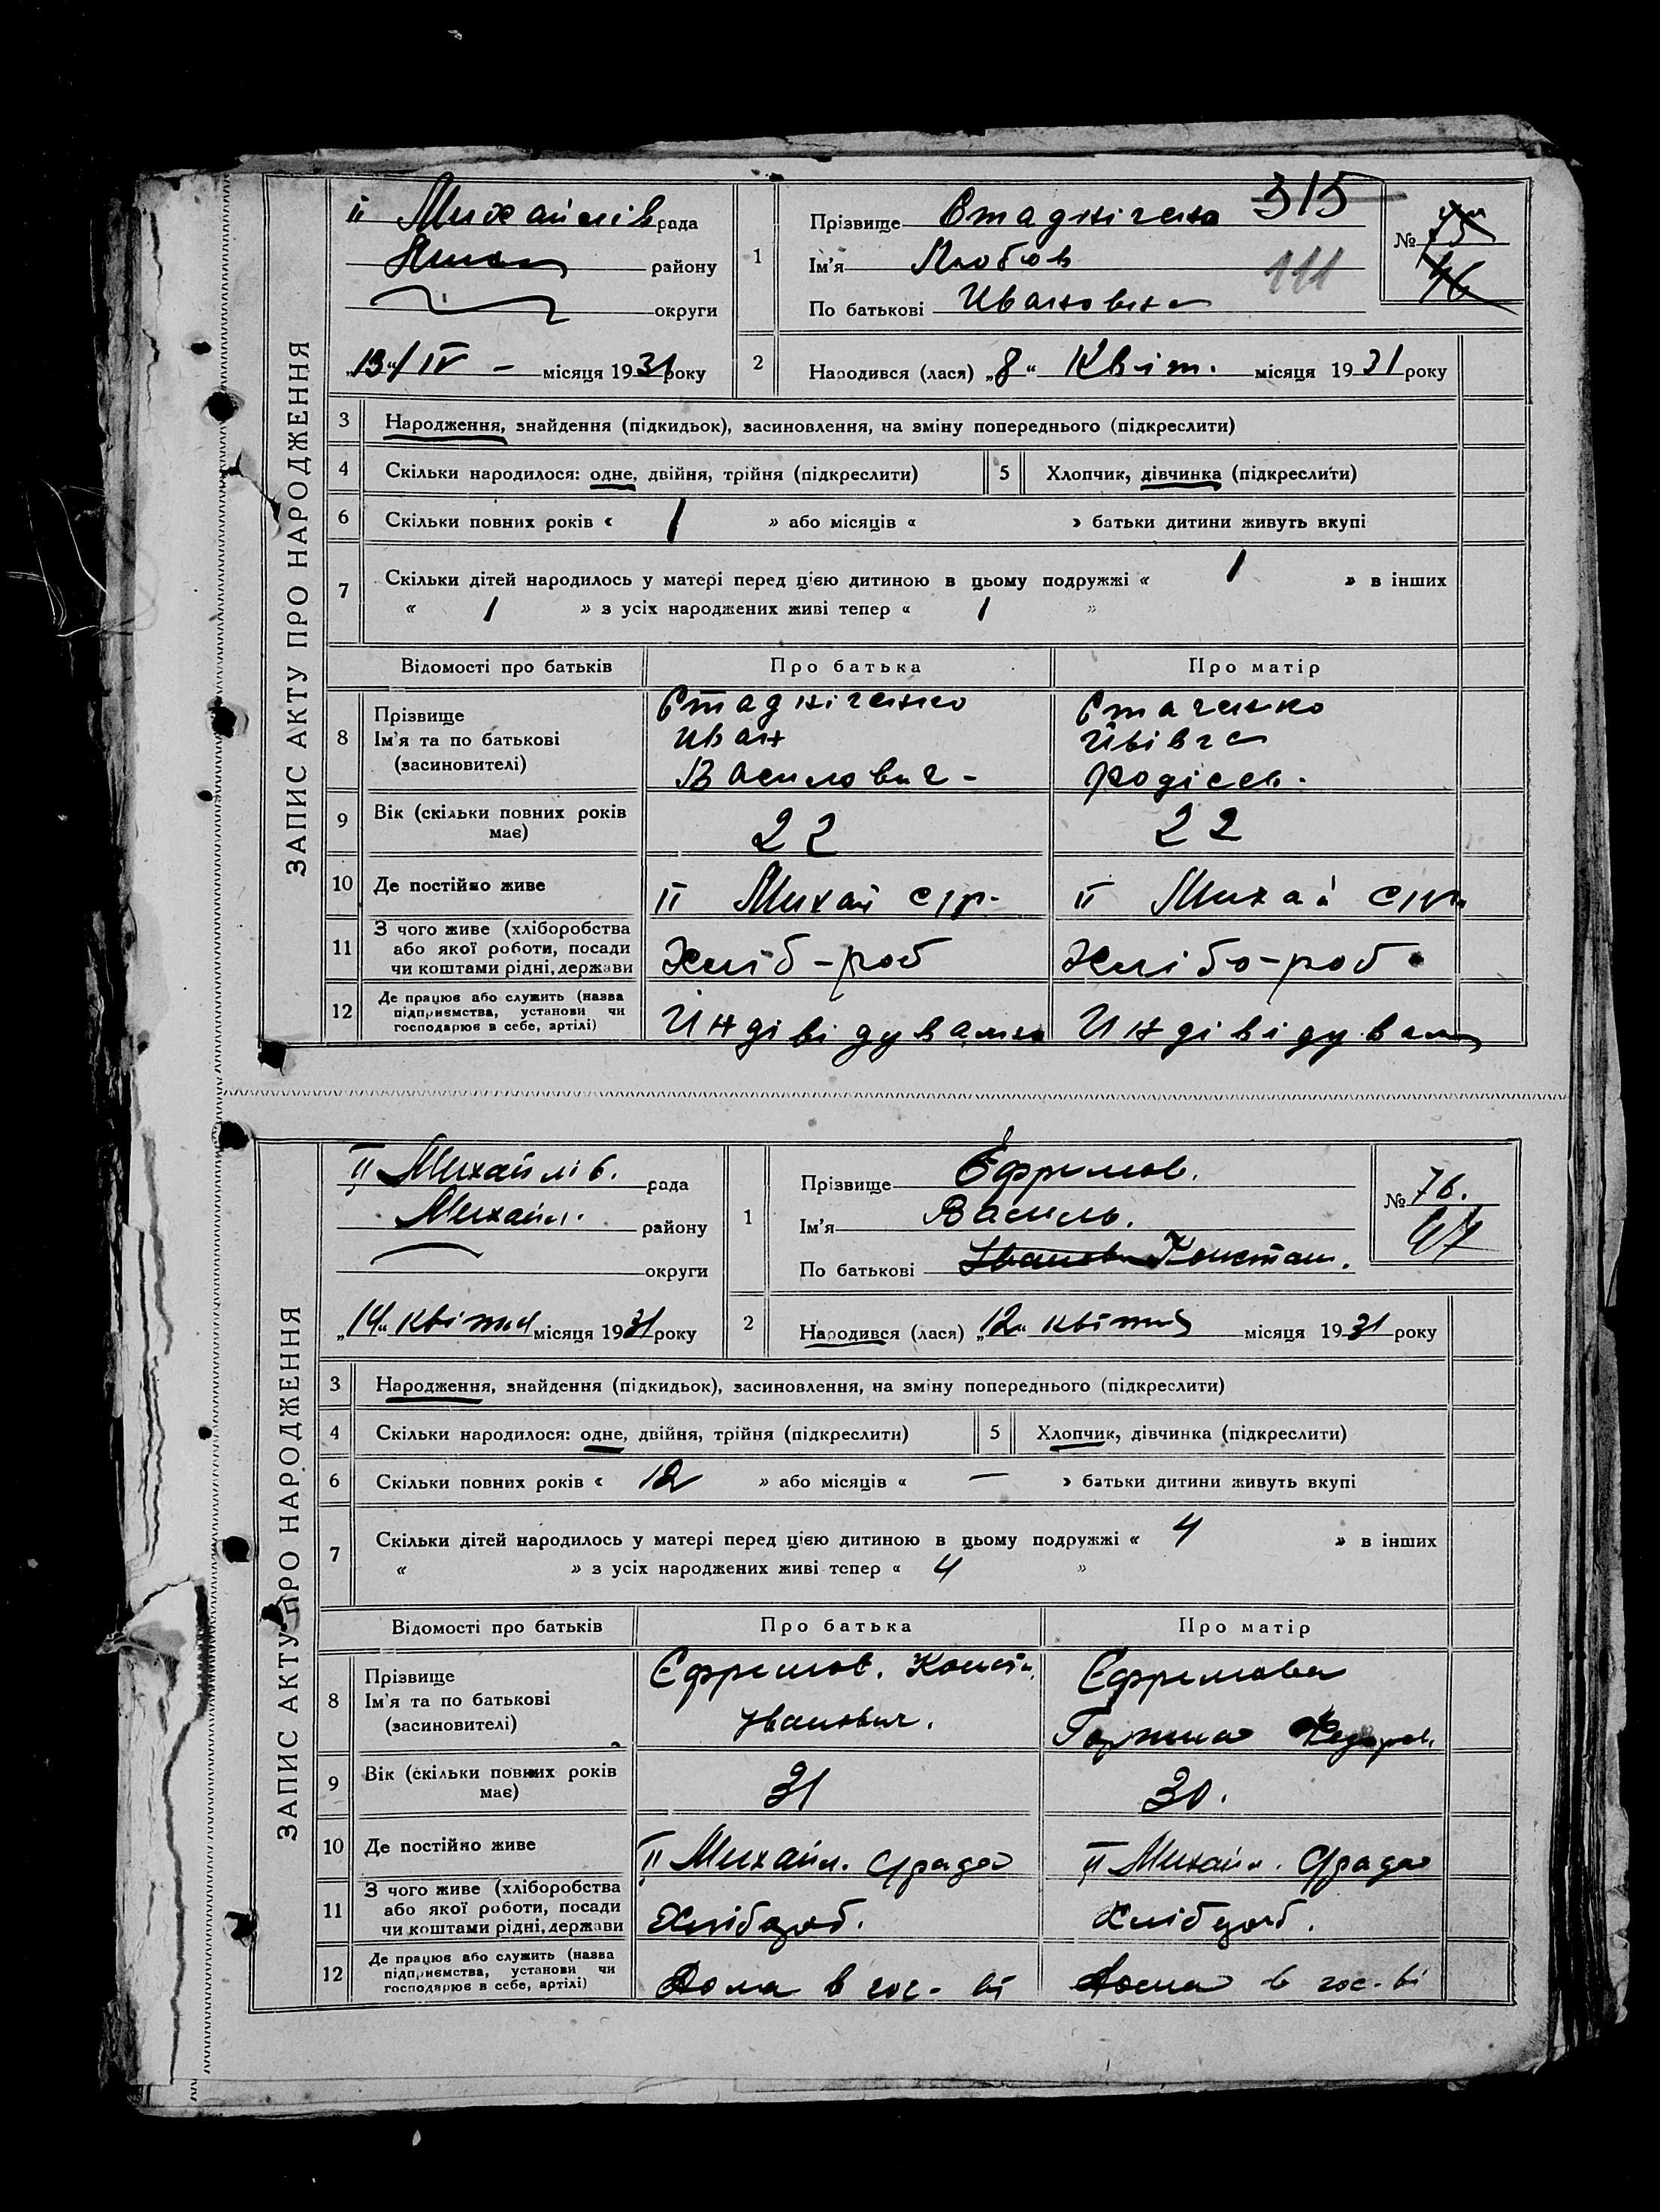 ЗАПИС АКТУ ПРО НАРОДЖЕННЯ
II Михайлів рада
району
округи
„13“/IV – місяця 1931 року
315
1 Прізвище Стадніченко
Ім'я Любов
111
По батькові Ивановна
№ 75
46
2 Народився (лася) „8“ Квіт. місяця 1931 року
3 Народження, знайдення (підкидьок), засиновлення, на зміну попереднього (підкреслити)
4 Скільки народилося: одне, двійня, трійня (підкреслити) 5 Хлопчик, дівчинка (підкреслити)
6 Скільки повних років « 1 » або місяців « » батьки дитини живуть вкупі
7 Скільки дітей народилось у матері перед цією дитиною в цьому подружжі « 1 » в інших
« 1 » з усіх народжених живі тепер « 1 »
Відомості про батьків Про батька Про матір
8 Прізвище Стадніченко
Ім'я та по батькові Иван
(засиновителі) Василович -
9 Вік (скільки повних років має) 22 22
10 Де постійно живе II Михай с/р- II Михай с/р
11 З чого живе (хліборобства або якої роботи, посади чи коштами рідні, держави Хліб-роб Хлібо-роб
12 Де працює або служить (назва підприємства, установи чи господарює в себе, артілі) Индівідувально Индівідувальн
ЗАПИС АКТУ ПРО НАРОДЖЕННЯ
II Михайлів. рада
Михайл. району
округи
„14“ квітня місяця 1931 року
1 Прізвище Єфремов.
Ім'я Василь.
По батькові Іванович Констан.
№ 76.
47
2 Народився (лася) „12“ квітня місяця 1931 року
3 Народження, знайдення (підкидьок), засиновлення, на зміну попереднього (підкреслити)
4 Скільки народилося: одне, двійня, трійня (підкреслити) 5 Хлопчик, дівчинка (підкреслити)
6 Скільки повних років « 12 » або місяців « — » батьки дитини живуть вкупі
7 Скільки дітей народилось у матері перед цією дитиною в цьому подружжі « 4 » в інших
« » з усіх народжених живі тепер « 4 »
Відомості про батьків Про батька Про матір
8 Прізвище Єфремов. Конст. Єфремова
Ім'я та по батькові Іванович. Федоров.
(засиновителі)
9 Вік (скільки повних років має) 31 30.
10 Де постійно живе II Михайл. с/рада II Михайл. с/рада
11 З чого живе (хліборобства або якої роботи, посади чи коштами рідні, держави Хлібороб. Хлібороб.
12 Де працює або служить (назва підприємства, установи чи господарює в себе, артілі) Дома в гос-ві Дома в гос-ві